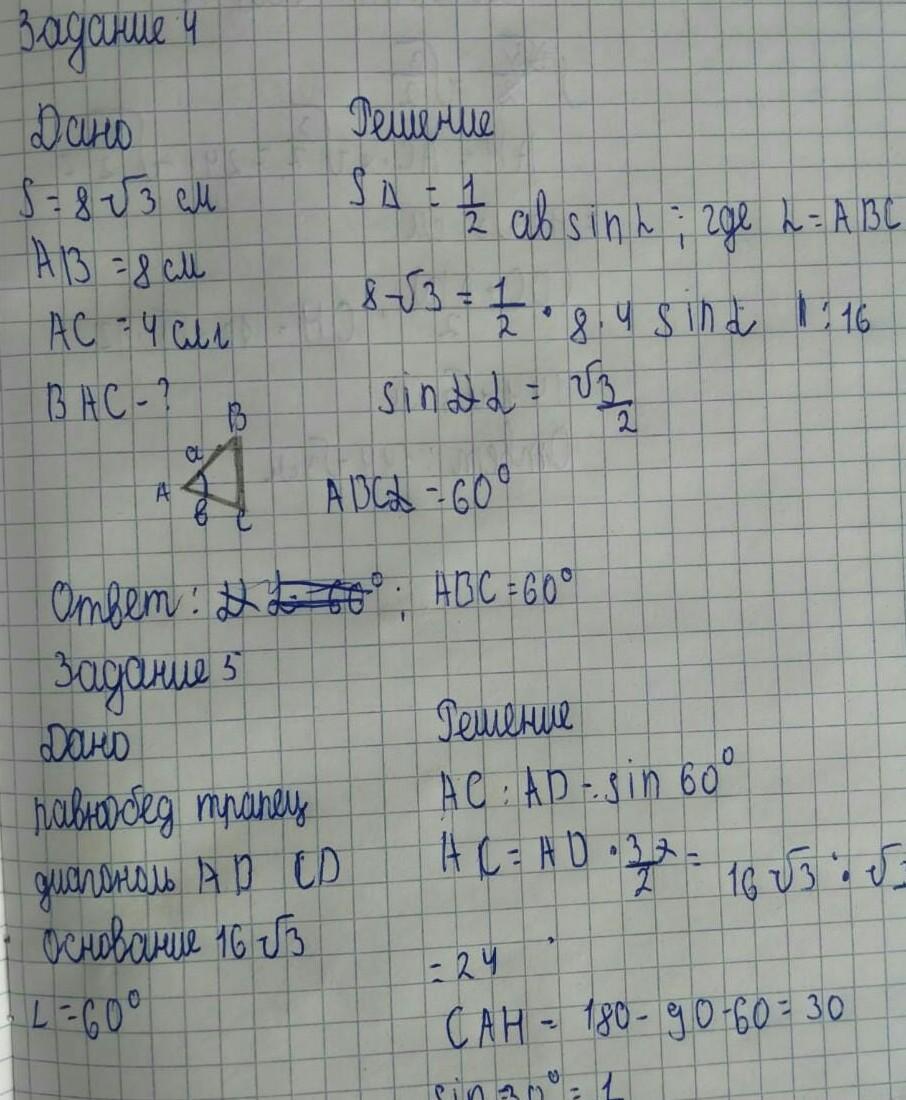 Задание 4
Дано
S = 8√3 см
AB = 8 см
AC = 4 см
BAC - ?
B
a
A
в
C
Решение
SΔ = 1/2 ab sin α ; где α = ABC
8√3 = 1/2 · 8 · 4 sin α | : 16
sin α = √3/2
ABC = 60°
Ответ: ; ABC = 60°
Задание 5
Дано
равнобед трапец
диагональ AD CD
основание 16√3
α = 60°
Решение
AC : AD = sin 60°
AC = AD · 2 = 16√3 · √3
= 24
CAH = 180 - 90 - 60 = 30
sin 30° = 1